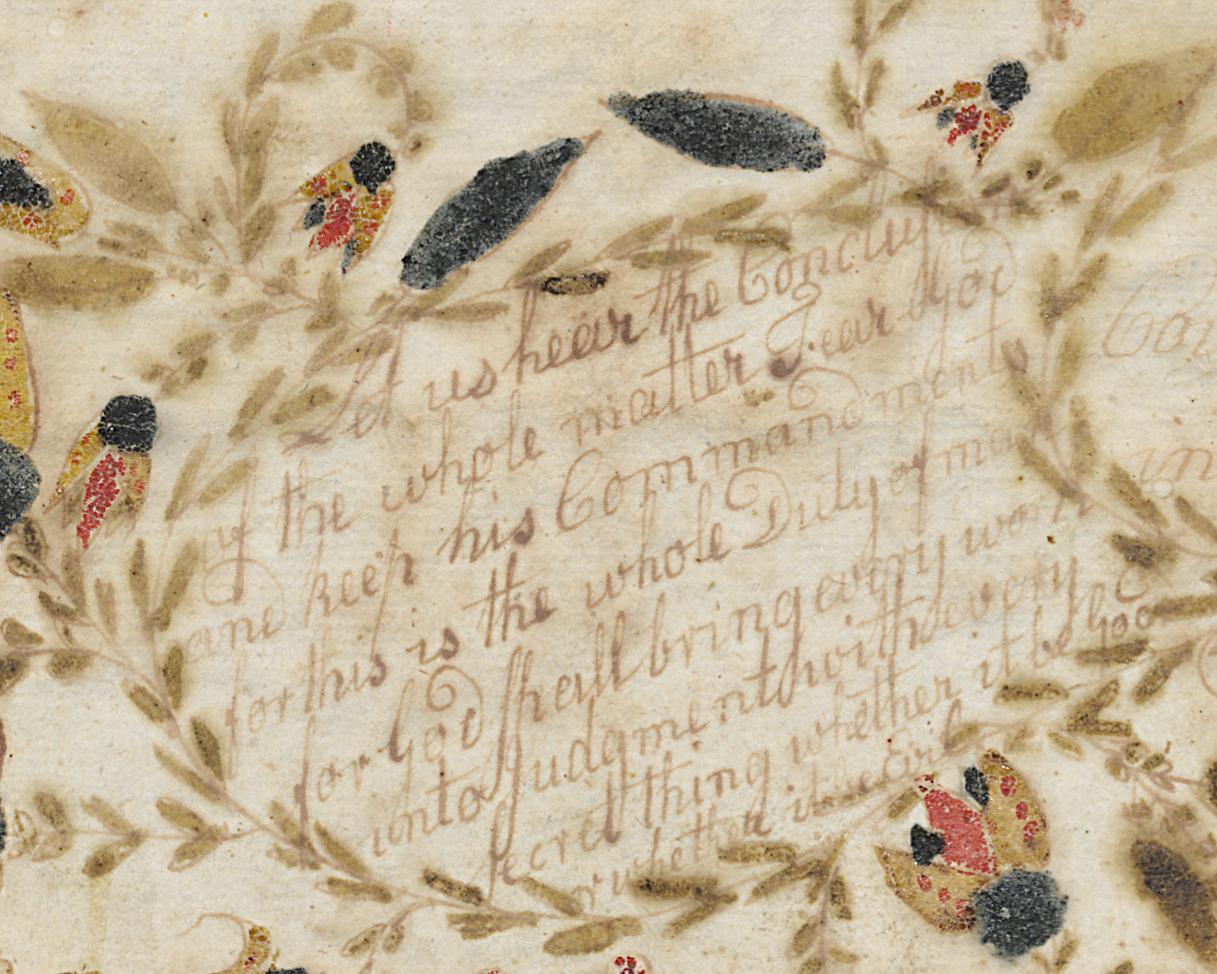 Let us hear the Conclusi
of the whole matter Fear God
and keep his Commandments
for this is the whole Duty of ma
for God shall bring every work
unto Judgment with every
secret thing whether it be goo
or whether it be Evil
in